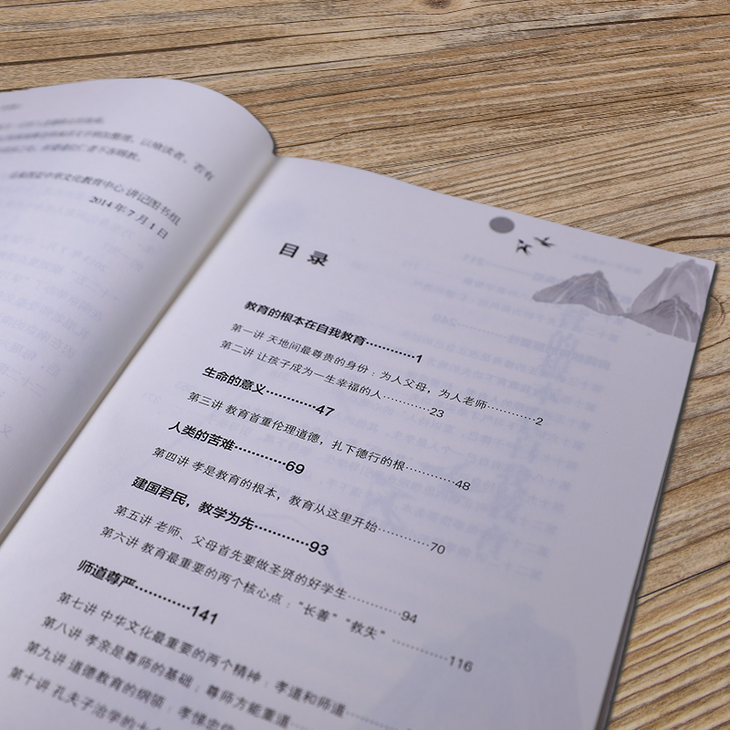 以飨读者，若有
中华文化教育中心 讲记图书组
2014年7月1日
目录
教育的根本在自我教育…………1
第一讲 天地间最尊贵的身份：为人父母，为人老师…………2
第二讲 让孩子成为一生幸福的人…………23
生命的意义…………47
第三讲 教育首重伦理道德，扎下德行的根…………48
人类的苦难…………69
第四讲 孝是教育的根本，教育从这里开始…………70
建国君民，教学为先…………93
第五讲 老师、父母首先要做圣贤的好学生…………94
第六讲 教育最重要的两个核心点：“长善”“救失”…………116
师道尊严…………141
第七讲 中华文化最重要的两个精神：孝道和师道
第八讲 孝亲是尊师的基础；尊师方能重道
第九讲 道德教育的纲领：孝悌忠信
第十讲 孔夫子治学的